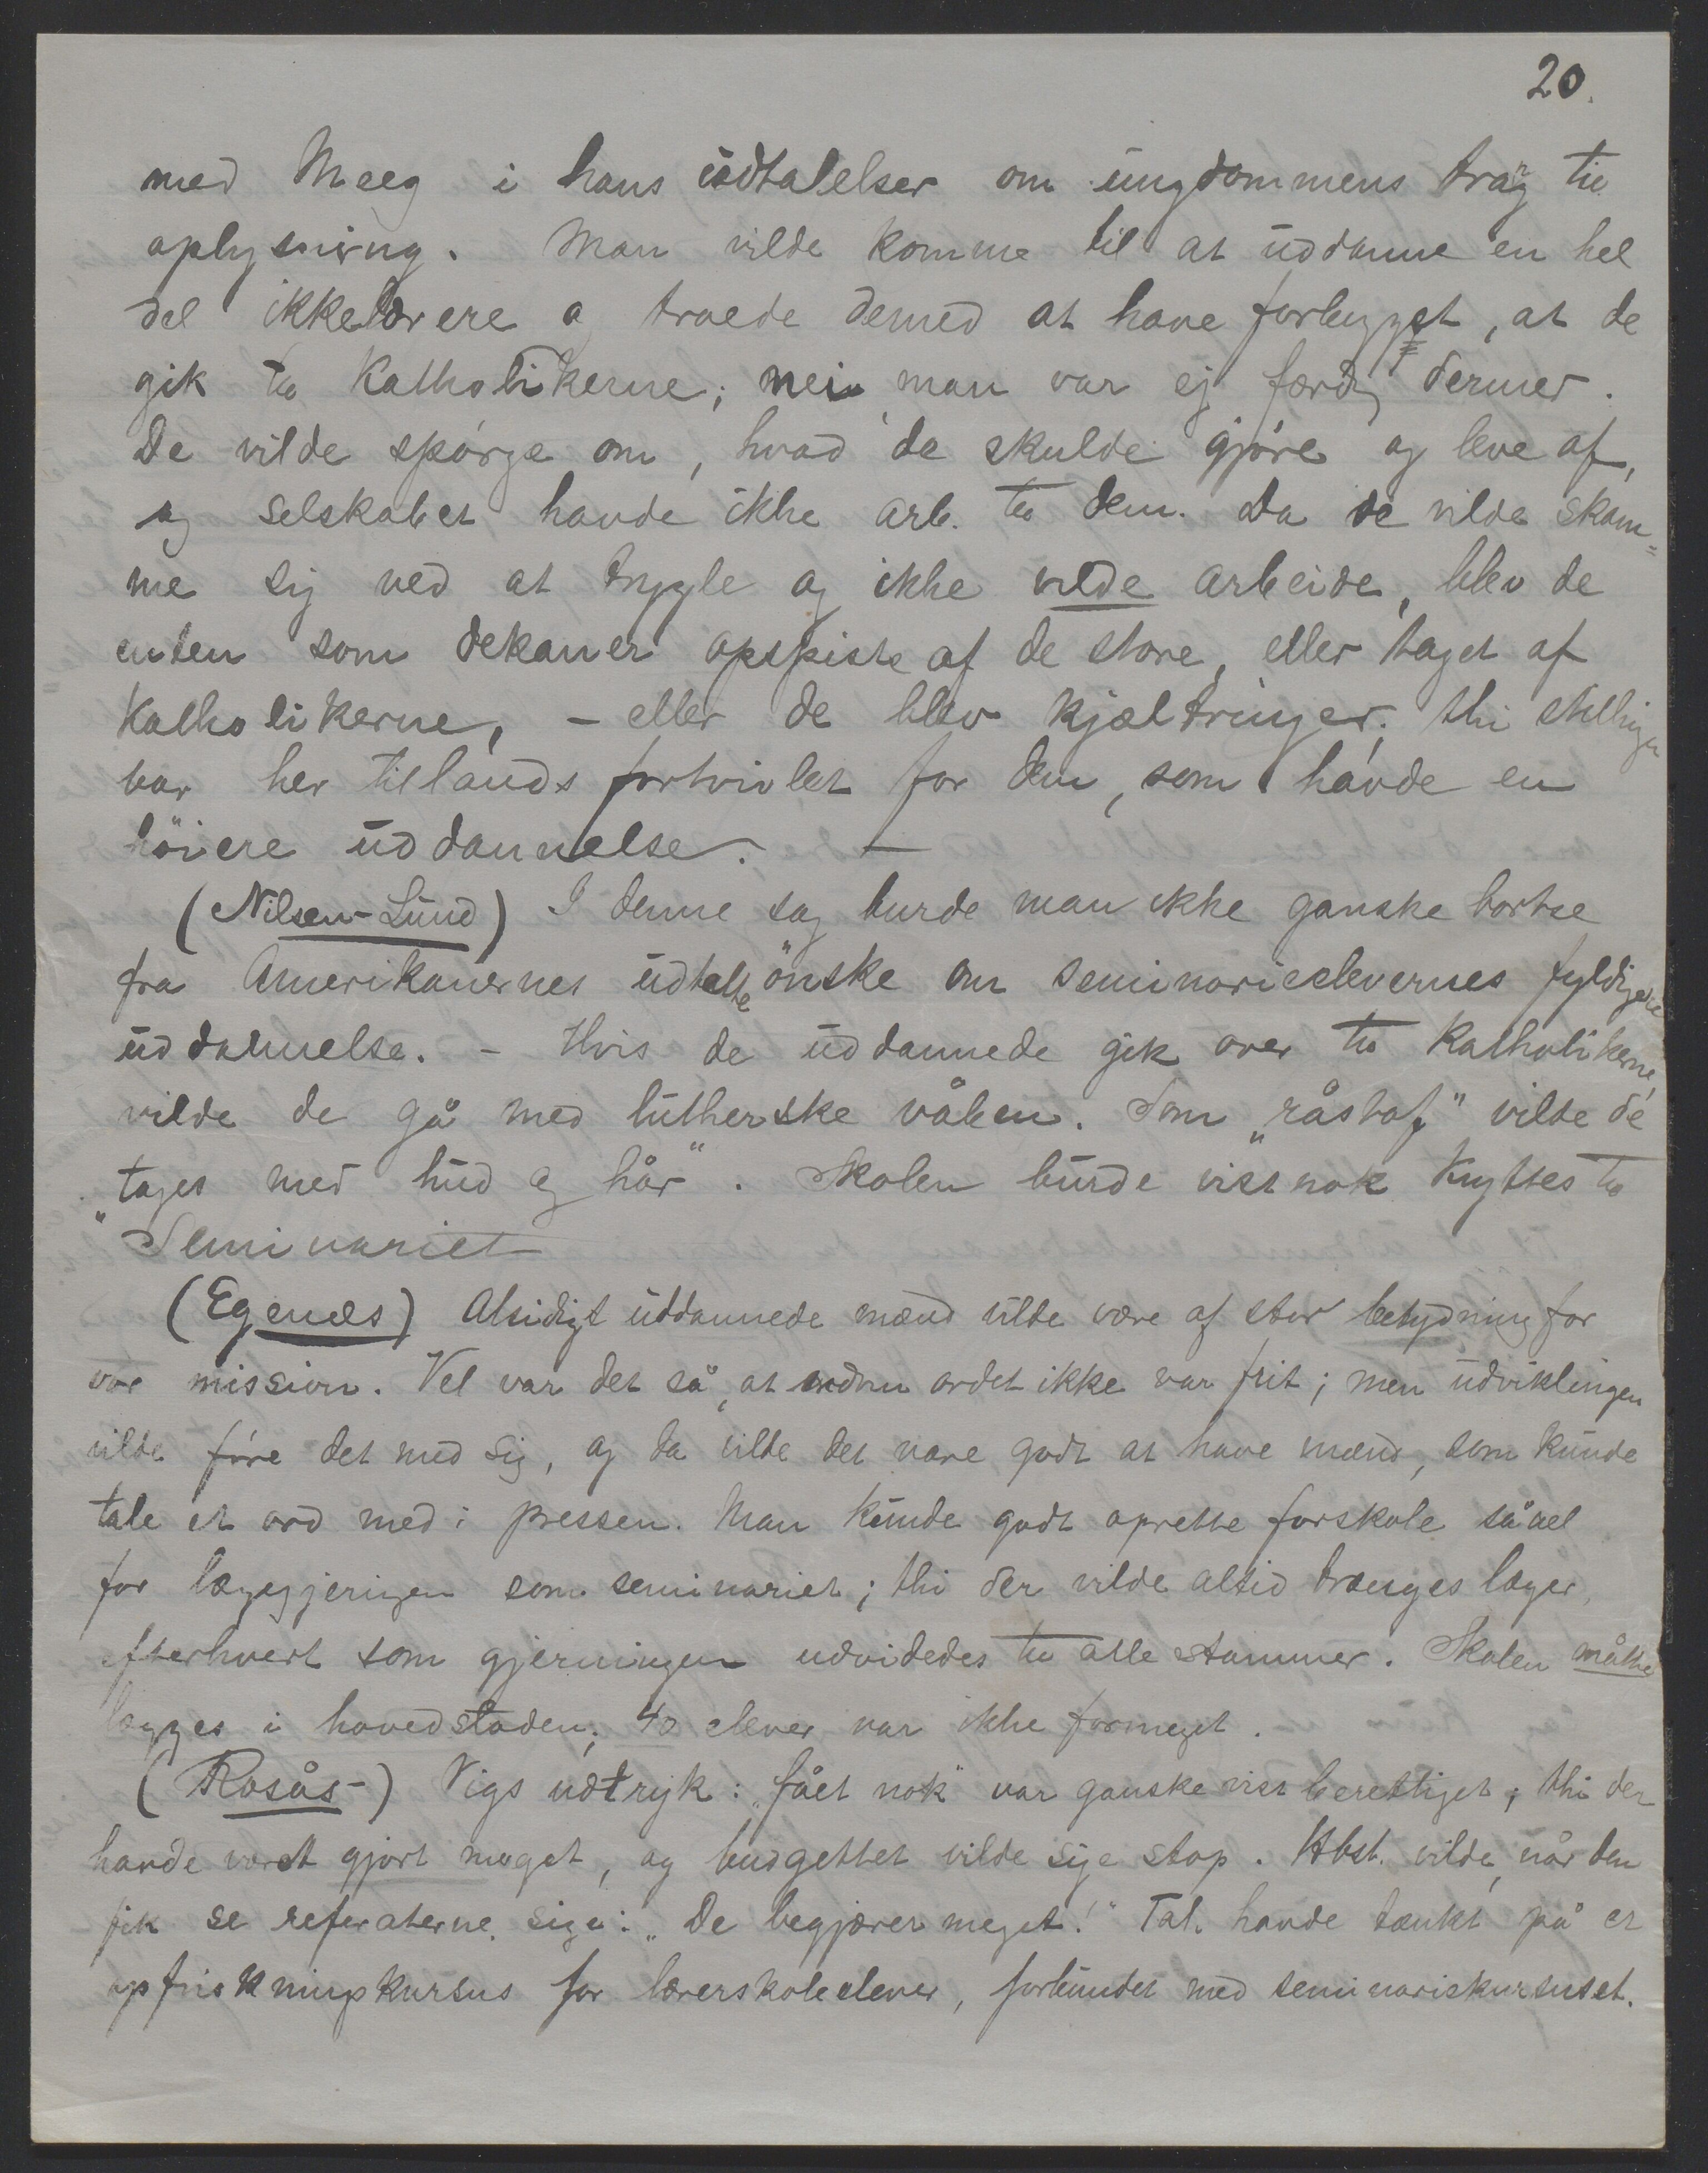 20.
med Meeg i hans udtalelser om ungdommens trang til
oplysning. Man vilde komme til at uddanne en hel
del ikkelærere og troede dermed at have forbygget, at de
gik til Katholikerne; nei man var ej færdig dermed.
De vilde spørge om, hvad de skulde gjøre og leve af,
og selskabet havde ikke arb. til dem. Da de vilde skam=
me sig ved at trygle og ikke vilde arbeide, blev de
enten som dekaner opspiste af de store, eller taget af
Katholikerne, – eller de blev kjæltringer; thi stillingen
var her tillands fortvivlet for dem, som havde en
höiere uddannelse. –
(Nilsen-Lund) I denne sag burde man ikke ganske bortse
fra Amerikanernes udtalte önske om seminarieelevernes fyldigere
uddannelse. – Hvis de uddannede gik over til Katholikerne,
vilde de gå med lutherske våben. Som „råstof" vilde de
„tages med hud og hår". Skolen burde visst nok knyttes til
Seminariet
(Egenæs) Alsidigt uddannede mænd vilde være af stor betydning for
vor mission. Vel var det så, at endnu ordet ikke var frit; men udviklingen
vilde føre det med sig, og da vilde det være godt at have mænd, som kunde
tale et ord med i pressen. Man kunde godt oprette forskole såvel
for lægegjeringen som seminariet; thi der vilde altid trænges læger,
efterhvert som gjerningen udvidedes til alle stammer. Skolen måtte
lægges i hovedstaden; 40 elever var ikke formeget.
(Rosås-) Vigs udtryk: „fået nok" var ganske visst berettiget; thi der
havde været gjort meget, og budgettet vilde sige stop. Hbst. vilde, når den
fik se referaterne, sige: „De begjærer meget!" Tal. havde tænkt på et
opfriskningskursus for lærerskoleelever, forbundet med seminariekursuset.